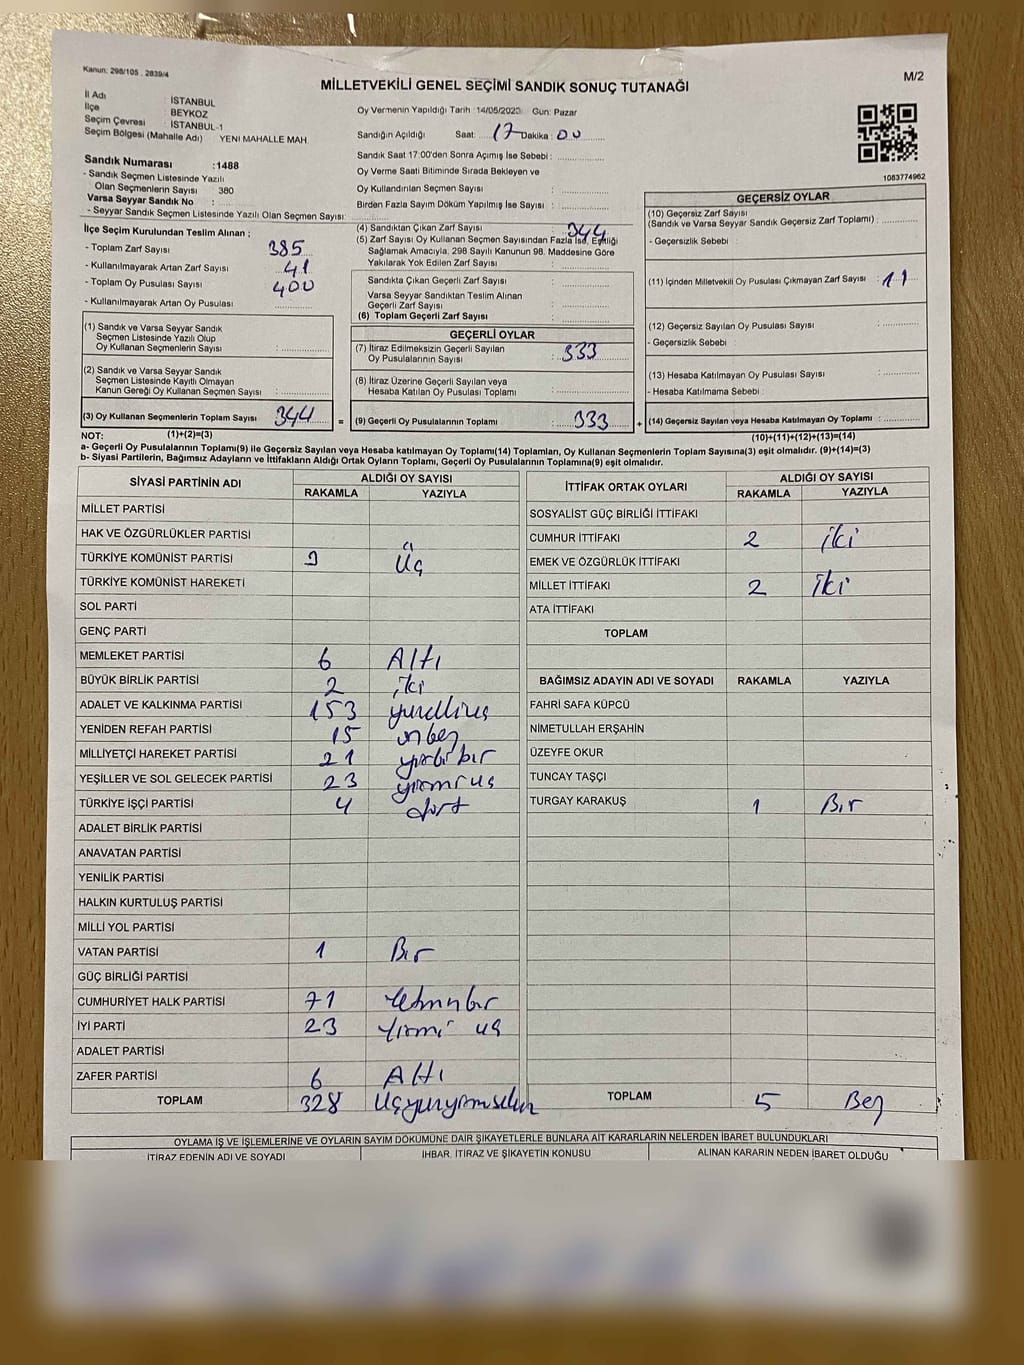 Kanun: 298/105 . 2839/4
MİLLETVEKİLİ GENEL SEÇİMİ SANDIK SONUÇ TUTANAĞI
M/2
İl Adı : İSTANBUL
İlçe : BEYKOZ
Seçim Çevresi : İSTANBUL-1
Seçim Bölgesi (Mahalle Adı) YENİ MAHALLE MAH.
Oy Vermenin Yapıldığı Tarih : 14/05/2023 Gün: Pazar
Sandığın Açıldığı Saat: 17 Dakika : 00
Sandık Saat 17:00'den Sonra Açımış İse Sebebi :
Oy Verme Saati Bitiminde Sırada Bekleyen ve
Oy Kullandırılan Seçmen Sayısı :
Birden Fazla Sayım Döküm Yapılmış İse Sayısı :
1083774962
Sandık Numarası : 1488
- Sandık Seçmen Listesinde Yazılı
Olan Seçmenlerin Sayısı 380
Varsa Seyyar Sandık No :
- Seyyar Sandık Seçmen Listesinde Yazılı Olan Seçmen Sayısı:
İlçe Seçim Kurulundan Teslim Alınan ;
- Toplam Zarf Sayısı : 385
- Kullanılmayarak Artan Zarf Sayısı : 41
- Toplam Oy Pusulası Sayısı : 400
- Kullanılmayarak Artan Oy Pusulası :
(1) Sandık ve Varsa Seyyar Sandık
Seçmen Listesinde Yazılı Olup
Oy Kullanan Seçmenlerin Sayısı :
(2) Sandık ve Varsa Seyyar Sandık
Seçmen Listesinde Kayıtlı Olmayan
Kanun Gereği Oy Kullanan Seçmen Sayısı :
(3) Oy Kullanan Seçmenlerin Toplam Sayısı : 344
(4) Sandıktan Çıkan Zarf Sayısı : 344
(5) Zarf Sayısı Oy Kullanan Seçmen Sayısından Fazla İse, Eşitliği
Sağlamak Amacıyla, 298 Sayılı Kanunun 98. Maddesine Göre
Yakılarak Yok Edilen Zarf Sayısı :
Sandıkta Çıkan Geçerli Zarf Sayısı :
Varsa Seyyar Sandıktan Teslim Alınan
Geçerli Zarf Sayısı :
(6) Toplam Geçerli Zarf Sayısı :
GEÇERLİ OYLAR
(7) İtiraz Edilmeksizin Geçerli Sayılan
Oy Pusulalarının Sayısı : 333
(8) İtiraz Üzerine Geçerli Sayılan veya
Hesaba Katılan Oy Pusulası Toplamı :
= (9) Geçerli Oy Pusulalarının Toplamı : 333
GEÇERSİZ OYLAR
(10) Geçersiz Zarf Sayısı
(Sandık ve Varsa Seyyar Sandık Geçersiz Zarf Toplamı) :
- Geçersizlik Sebebi :
(11) İçinden Milletvekili Oy Pusulası Çıkmayan Zarf Sayısı : 11
(12) Geçersiz Sayılan Oy Pusulası Sayısı :
- Geçersizlik Sebebi :
(13) Hesaba Katılmayan Oy Pusulası Sayısı :
- Hesaba Katılmama Sebebi :
+ (14) Geçersiz Sayılan veya Hesaba Katılmayan Oy Toplamı :
NOT: (1)+(2)=(3)
(10)+(11)+(12)+(13)=(14)
a- Geçerli Oy Pusulalarının Toplamı(9) ile Geçersiz Sayılan veya Hesaba katılmayan Oy Toplamı(14) Toplamları, Oy Kullanan Seçmenlerin Toplam Sayısına(3) eşit olmalıdır. (9)+(14)=(3)
b- Siyasi Partilerin, Bağımsız Adayların ve İttifakların Aldığı Ortak Oyların Toplamı, Geçerli Oy Pusulalarının Toplamına(9) eşit olmalıdır.
SİYASİ PARTİNİN ADI ALDIĞI OY SAYISI
RAKAMLA YAZIYLA
MİLLET PARTİSİ
HAK VE ÖZGÜRLÜKLER PARTİSİ
TÜRKİYE KOMÜNİST PARTİSİ 3 Üç
TÜRKİYE KOMÜNİST HAREKETİ
SOL PARTİ
GENÇ PARTİ
MEMLEKET PARTİSİ 6 Altı
BÜYÜK BİRLİK PARTİSİ 2 iki
ADALET VE KALKINMA PARTİSİ 153
YENİDEN REFAH PARTİSİ 15 onbeş
MİLLİYETÇİ HAREKET PARTİSİ 21
YEŞİLLER VE SOL GELECEK PARTİSİ 23
TÜRKİYE İŞÇİ PARTİSİ 4 dört
ADALET BİRLİK PARTİSİ
ANAVATAN PARTİSİ
YENİLİK PARTİSİ
HALKIN KURTULUŞ PARTİSİ
MİLLİ YOL PARTİSİ
VATAN PARTİSİ 1 Bir
GÜÇ BİRLİĞİ PARTİSİ
CUMHURİYET HALK PARTİSİ 71
İYİ PARTİ 23 Yirmi üç
ADALET PARTİSİ
ZAFER PARTİSİ 6 Altı
TOPLAM 328
İTTİFAK ORTAK OYLARI ALDIĞI OY SAYISI
RAKAMLA YAZIYLA
SOSYALİST GÜÇ BİRLİĞİ İTTİFAKI
CUMHUR İTTİFAKI 2 İki
EMEK VE ÖZGÜRLÜK İTTİFAKI
MİLLET İTTİFAKI 2 İki
ATA İTTİFAKI
TOPLAM
BAĞIMSIZ ADAYIN ADI VE SOYADI RAKAMLA YAZIYLA
FAHRİ SAFA KÜPCÜ
NİMETULLAH ERŞAHİN
ÜZEYFE OKUR
TUNCAY TAŞÇI
TURGAY KARAKUŞ 1 Bır
TOPLAM 5 Beş
OYLAMA İŞ VE İŞLEMLERİNE VE OYLARIN SAYIM DÖKÜMÜNE DAİR ŞİKAYETLERLE BUNLARA AİT KARARLARIN NELERDEN İBARET BULUNDUKLARI
İTİRAZ EDENİN ADI VE SOYADI İHBAR, İTİRAZ VE ŞİKAYETİN KONUSU ALINAN KARARIN NEDEN İBARET OLDUĞU